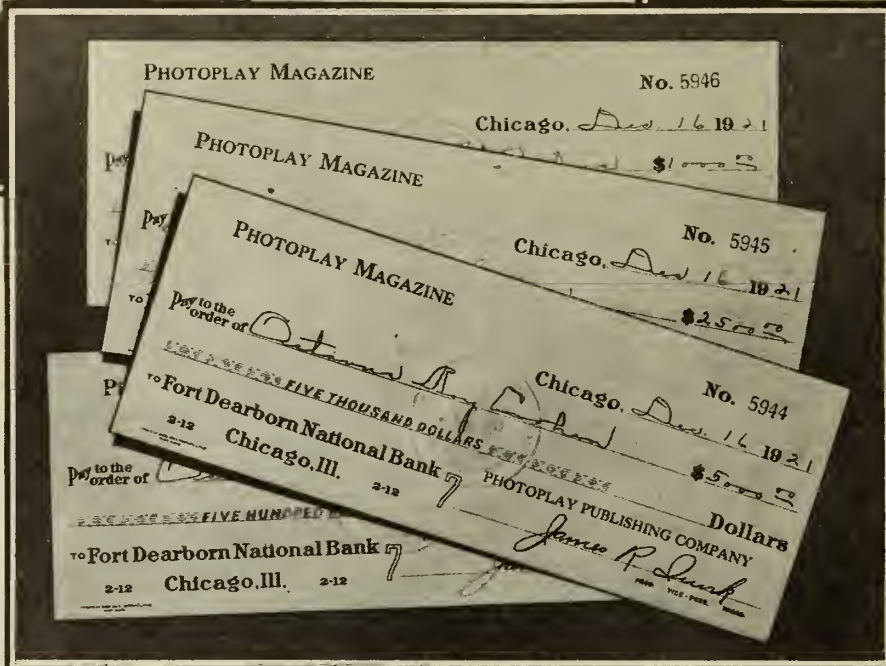 PHOTOPLAY MAGAZINE
No. 5946
Chicago, Dec. 16 1921
$1000 00
PHOTOPLAY MAGAZINE
No. 5945
Chicago, Dec 16 1921
Pay
$2500 00
TO
PHOTOPLAY MAGAZINE
No. 5944
Chicago, Dec 16 1921
Pay to the
order of
$5000 00
FIVE THOUSAND DOLLARS
Dollars
TO Fort Dearborn National Bank
2-12 Chicago, Ill. 2-12
PHOTOPLAY PUBLISHING COMPANY
James R.
PRES. VICE-PRES.
Pay to the
order of
FIVE HUNDRED
TO Fort Dearborn National Bank
2-12 Chicago, Ill. 2-12